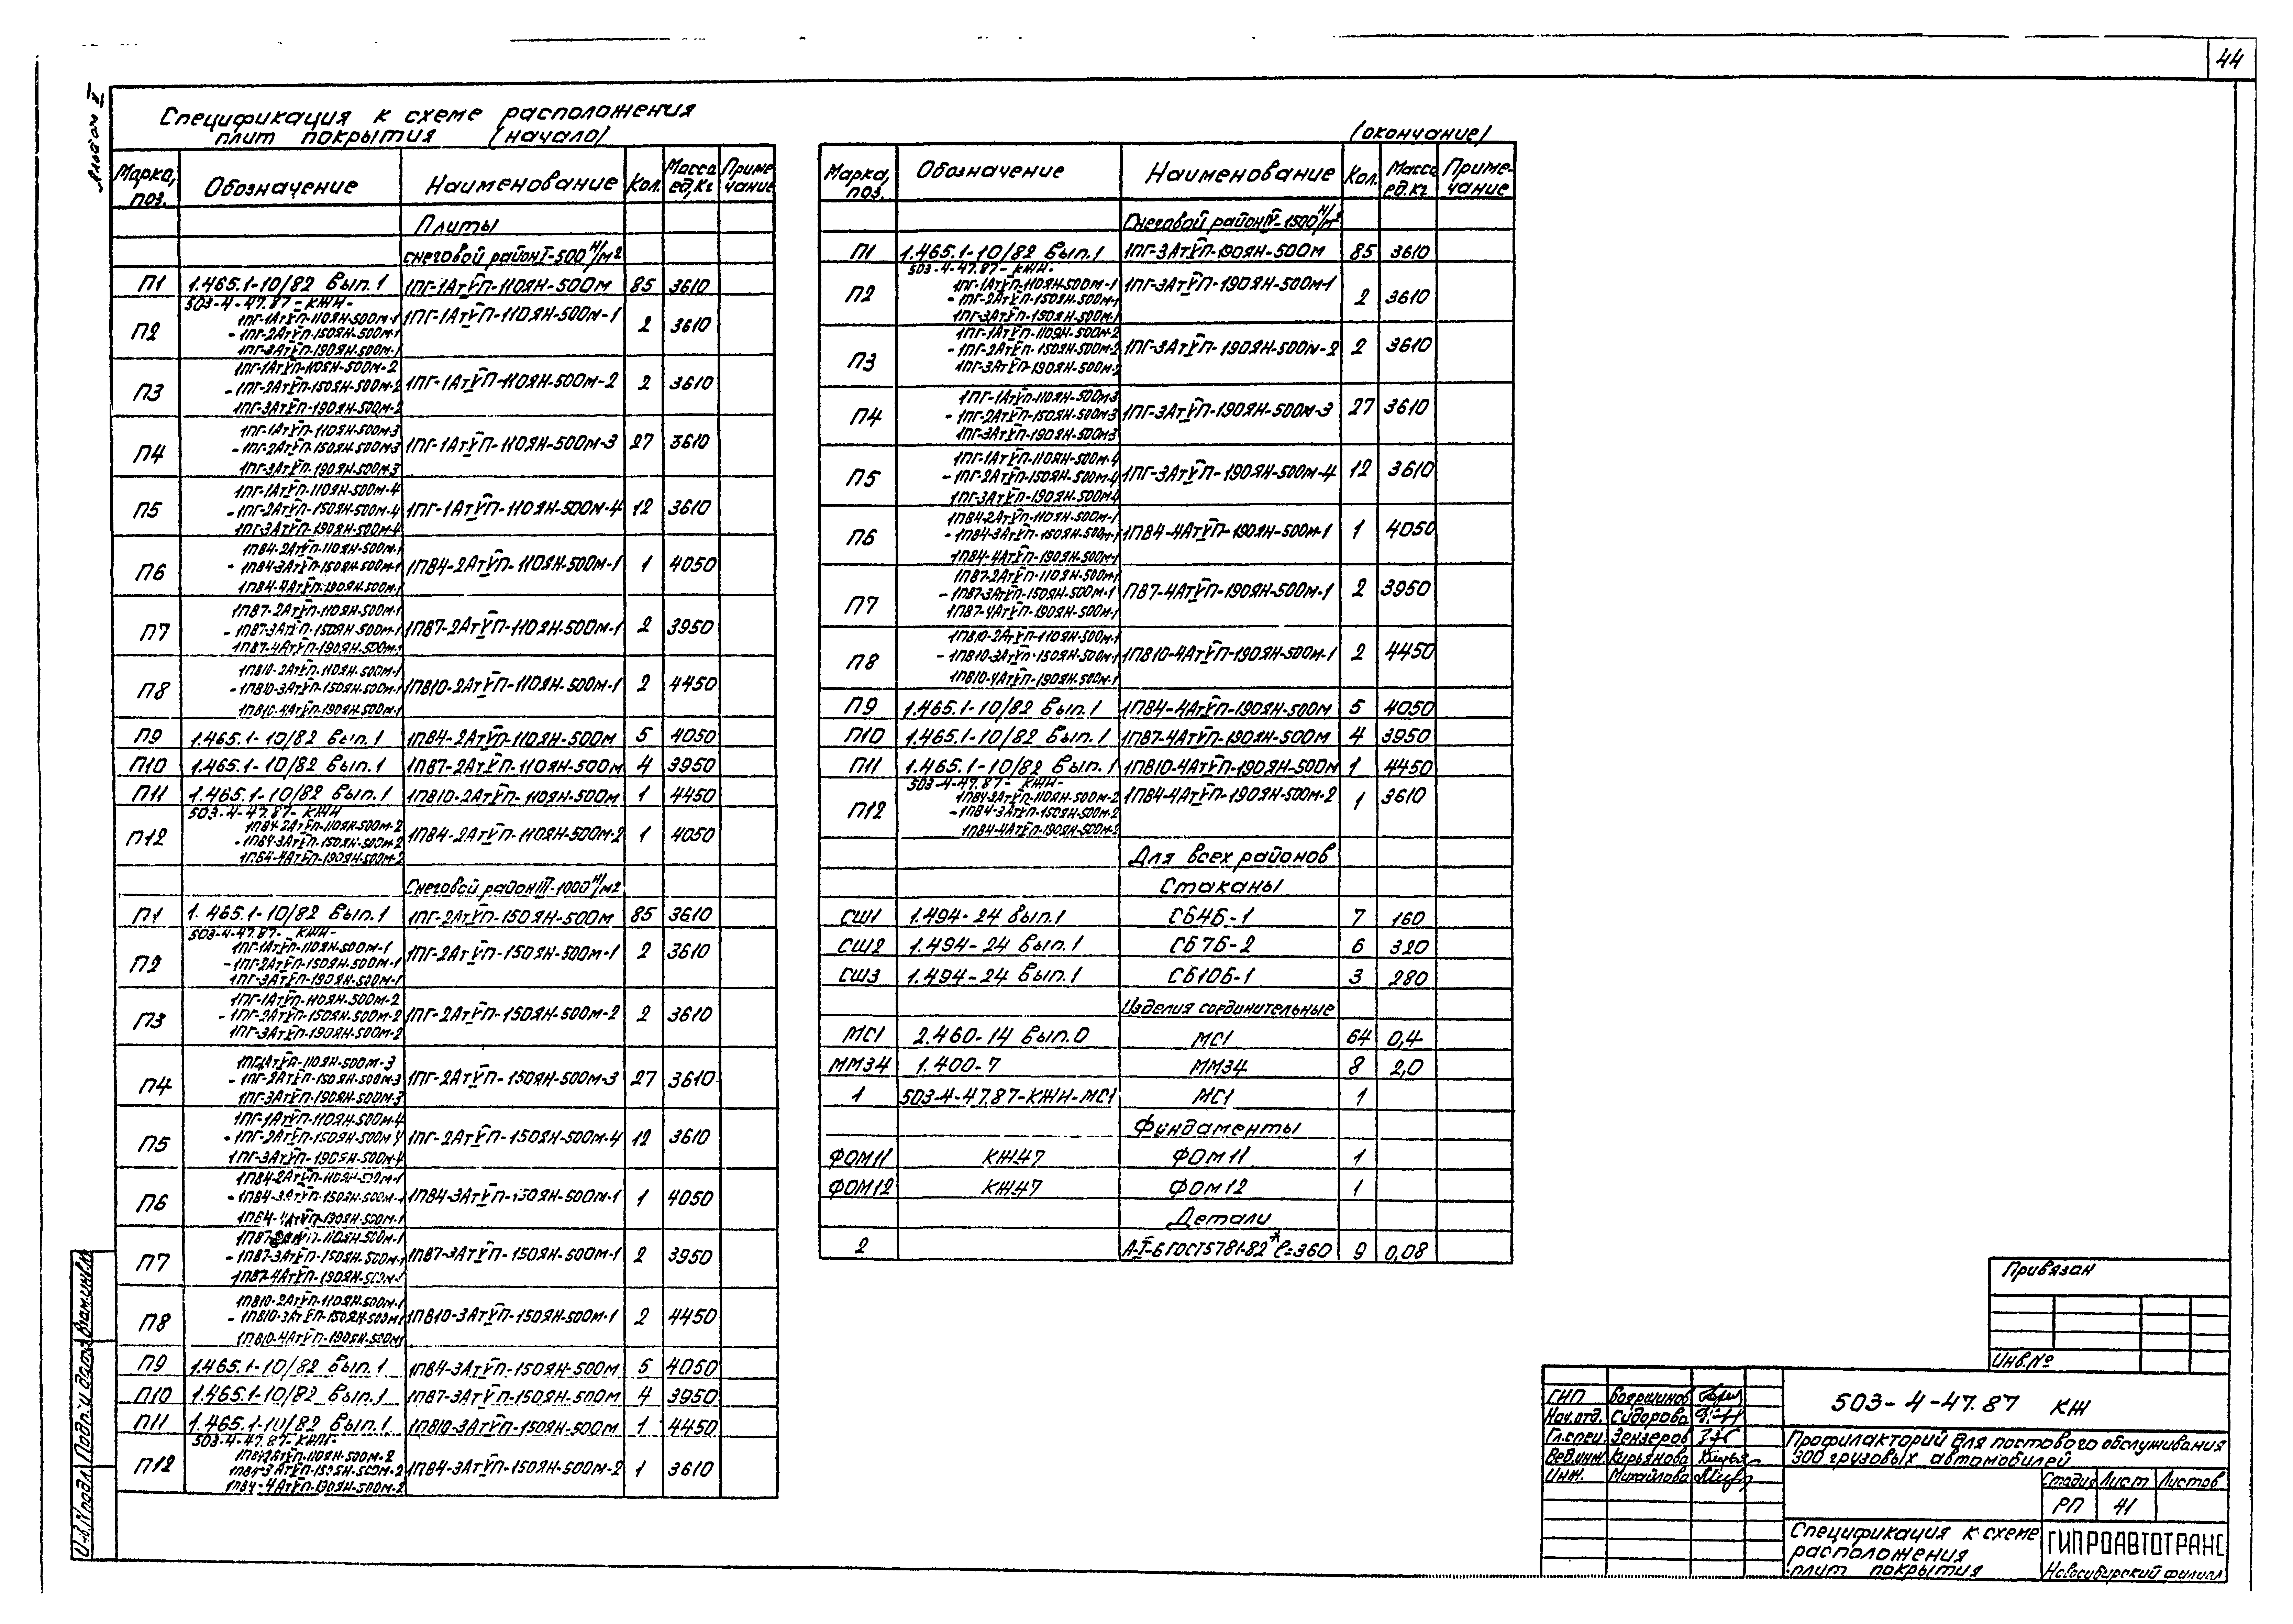 44
Альбом V
Спецификация к схеме расположения
плит покрытия (начало)
Марка, поз. Обозначение Наименование Кол. Масса ед,кг Приме чание
Плиты
снеговой район I-500 н/м2
П1 1.465.1-10/82 Вып.1 1ПГ-1АтVП-110ЯН-500м 85 3610
503-4-47.87-КЖИ-
1ПГ-1АтVП-110ЯН-500м-1
П2 -1ПГ-2АтVП-150ЯН-500м-1 1ПГ-1АтVП-110ЯН-500м-1 2 3610
1ПГ-3АтVП-190ЯН-500м-1
1ПГ-1АтVП-110ЯН-500м-2
П3 -1ПГ-2АтVП-150ЯН-500м-2 1ПГ-1АтVП-110ЯН-500м-2 2 3610
1ПГ-3АтVП-190ЯН-500м-2
1ПГ-1АтVП-110ЯН-500м-3
П4 -1ПГ-2АтVП-150ЯН-500м3 1ПГ-1АтVП-110ЯН-500м-3 27 3610
1ПГ-3АтVП-190ЯН-500м-3
1ПГ-1АтVП-110ЯН-500м-4
П5 -1ПГ-2АтVП-150ЯН-500м-4 1ПГ-1АтVП-110ЯН-500м-4 12 3610
1ПГ-3АтVП-190ЯН-500м-4
1ПВ4-2АтVП-110ЯН-500м-1
П6 -1ПВ4-3АтVП-150ЯН-500м-1 1ПВ4-2АтVП-110ЯН-500м-1 1 4050
1ПВ4-4АтVП-190ЯН-500м-1
1ПВ7-2АтVП-110ЯН-500м-1
П7 -1ПВ7-3АтVП-150ЯН-500м-1 1ПВ7-2АтVП-110ЯН-500м-1 2 3950
1ПВ7-4АтVП-190ЯН-500м-1
1ПВ10-2АтVП-110ЯН-500м-1
П8 -1ПВ10-3АтVП-150ЯН-500м-1 1ПВ10-2АтVП-110ЯН-500м-1 2 4450
1ПВ10-4АтVП-190ЯН-500м-1
П9 1.465.1-10/82 Вып.1 1ПВ4-2АтVП-110ЯН-500м 5 4050
П10 1.465.1-10/82 Вып.1 1ПВ7-2АтVП-110ЯН-500м 4 3950
П11 1.465.1-10/82 Вып.1 1ПВ10-2АтVП-110ЯН-500м 1 4450
503-4-47.87-КЖИ
1ПВ4-2АтVП-110ЯН-500м-2
П12 -1ПВ4-3АтVП-150ЯН-500м-2 1ПВ4-2АтVП-110ЯН-500м-2 1 4050
1ПВ4-4АтVП-190ЯН-500м-2
Снеговой район III-1000 н/м2
П1 1.465.1-10/82 Вып.1 1ПГ-2АтVП-150ЯН-500м 85 3610
503-4-47.87-КЖИ-
1ПГ-1АтVП-110ЯН-500м-1
П2 -1ПГ-2АтVП-150ЯН-500м-1 1ПГ-2АтVП-150ЯН-500м-1 2 3610
1ПГ-3АтVП-190ЯН-500м-1
1ПГ-1АтVП-110ЯН-500м-2
П3 -1ПГ-2АтVП-150ЯН-500м-2 1ПГ-2АтVП-150ЯН-500м-2 2 3610
1ПГ-3АтVП-190ЯН-500м-2
1ПГ-1АтVП-110ЯН-500м-3
П4 -1ПГ-2АтVП-150ЯН-500м-3 1ПГ-2АтVП-150ЯН-500м-3 27 3610
1ПГ-3АтVП-190ЯН-500м-3
1ПГ-1АтVП-110ЯН-500м-4
П5 -1ПГ-2АтVП-150ЯН-500м-4 1ПГ-2АтVП-150ЯН-500м-4 12 3610
1ПГ-3АтVП-190ЯН-500м-4
1ПВ4-2АтVП-110ЯН-500м-1
П6 -1ПВ4-3АтVП-150ЯН-500м-1 1ПВ4-3АтVП-150ЯН-500м-1 1 4050
1ПВ4-4АтVП-190ЯН-500м-1
1ПВ7-2АтVП-110ЯН-500м-1
П7 -1ПВ7-3АтVП-150ЯН-500м-1 1ПВ7-3АтVП-150ЯН-500м-1 2 3950
1ПВ7-4АтVП-190ЯН-500м-1
1ПВ10-2АтVП-110ЯН-500м-1
П8 -1ПВ10-3АтVП-150ЯН-500м1 1ПВ10-3АтVП-150ЯН-500м-1 2 4450
1ПВ10-4АтVП-190ЯН-500м1
П9 1.465.1-10/82 Вып.1 1ПВ4-3АтVП-150ЯН-500м 5 4050
П10 1.465.1-10/82 Вып.1 1ПВ7-3АтVП-150ЯН-500м 4 3950
П11 1.465.1-10/82 Вып.1 1ПВ10-3АтVП-150ЯН-500м 1 4450
503-4-47.87-КЖИ-
1ПВ4-2АтVП-110ЯН-500м-2
П12 1ПВ4-3АтVП-150ЯН-500м-2 1ПВ4-3АтVП-150ЯН-500м-2 1 3610
1ПВ4-4АтVП-190ЯН-500м-2
(окончание)
Марка, поз. Обозначение Наименование Кол. Масса ед.кг Приме-чание
Снеговой район IV-1500 н/м2
П1 1.465.1-10/82 Вып.1 1ПГ-3АтVП-190ЯН-500м 85 3610
503-4-47.87-КЖИ-
1ПГ-1АтVП-110ЯН-500м-1
П2 -1ПГ-2АтVП-150ЯН-500м-1 1ПГ-3АтVП-190ЯН-500м-1 2 3610
1ПГ-3АтVП-150ЯН-500м-1
1ПГ-1АтVП-110ЯН-500м-2
П3 -1ПГ-2АтVП-150ЯН-500м-2 1ПГ-3АтVП-190ЯН-500м-2 2 3610
1ПГ-3АтVП-190ЯН-500м-2
1ПГ-1АтVП-110ЯН-500м3
П4 -1ПГ-2АтVП-150ЯН-500м3 1ПГ-3АтVП-190ЯН-500м-3 27 3610
1ПГ-3АтVП-190ЯН-500м3
1ПГ-1АтVП-110ЯН-500м-4
П5 -1ПГ-2АтVП-150ЯН-500м-4 1ПГ-3АтVП-190ЯН-500м-4 12 3610
1ПГ-3АтVП-190ЯН-500м-4
1ПВ4-2АтVП-110ЯН-500м-1
П6 -1ПВ4-3АтVП-150ЯН-500м-1 1ПВ4-4АтVП-190ЯН-500м-1 1 4050
1ПВ4-4АтVП-190ЯН-500м-1
1ПВ7-2АтVП-110ЯН-500м-1
П7 -1ПВ7-3АтVП-150ЯН-500м-1 ПВ7-4АтVП-190ЯН-500м-1 2 3950
1ПВ7-4АтVП-190ЯН-500м-1
1ПВ10-2АтVП-110ЯН-500м-1
П8 -1ПВ10-3АтVП-150ЯН-500м-1 1ПВ10-4АтVП-190ЯН-500м-1 2 4450
1ПВ10-4АтVП-190ЯН-500м-1
П9 1.465.1-10/82 Вып.1 1ПВ4-4АтVП-190ЯН-500м 5 4050
П10 1.465.1-10/82 Вып.1 1ПВ7-4АтVП-190ЯН-500м 4 3950
П11 1.465.1-10/82 Вып.1 1ПВ10-4АтVП-190ЯН-500м 1 4450
503-4-47.87-КЖИ-
1ПВ4-2АтVП-110ЯН-500м-2
П12 -1ПВ4-3АтVП-150ЯН-500м-2 1ПВ4-4АтVП-190ЯН-500м-2 1 3610
1ПВ4-4АтVП-190ЯН-500м-2
Для всех районов
Стаканы
СШ1 1.494-24 Вып.1 СБ4Б-1 7 160
СШ2 1.494-24 Вып.1 СБ7Б-2 6 320
СШ3 1.494-24 Вып.1 СБ10Б-1 3 280
Изделия соединительные
МС1 2.460-14 Вып.0 МС1 64 0,4
ММ34 1.400-7 ММ34 8 2,0
1 503-4-47.87-КЖИ-МС1 МС1 1
Фундаменты
ФОМ11 КЖ47 ФОМ11 1
ФОМ12 КЖ47 ФОМ12 1
Детали
2 А-I-6 ГОСТ5781-82* ℓ=360 9 0,08
Привязан
Инв.№
ГИП Бояршинов
Нач.отд. Сидорова
Гл.спец. Зензеров
Вед.инж. Кирьянова
Инж. Михайлова
503-4-47.87 КЖ
Профилакторий для постового обслуживания
300 грузовых автомобилей
Стадия Лист Листов
РП 41
Спецификация к схеме
расположения
плит покрытия
ГИПРОАВТОТРАНС
Новосибирский филиал
Инв.№подл. Подп. и дата Взам.инв.№